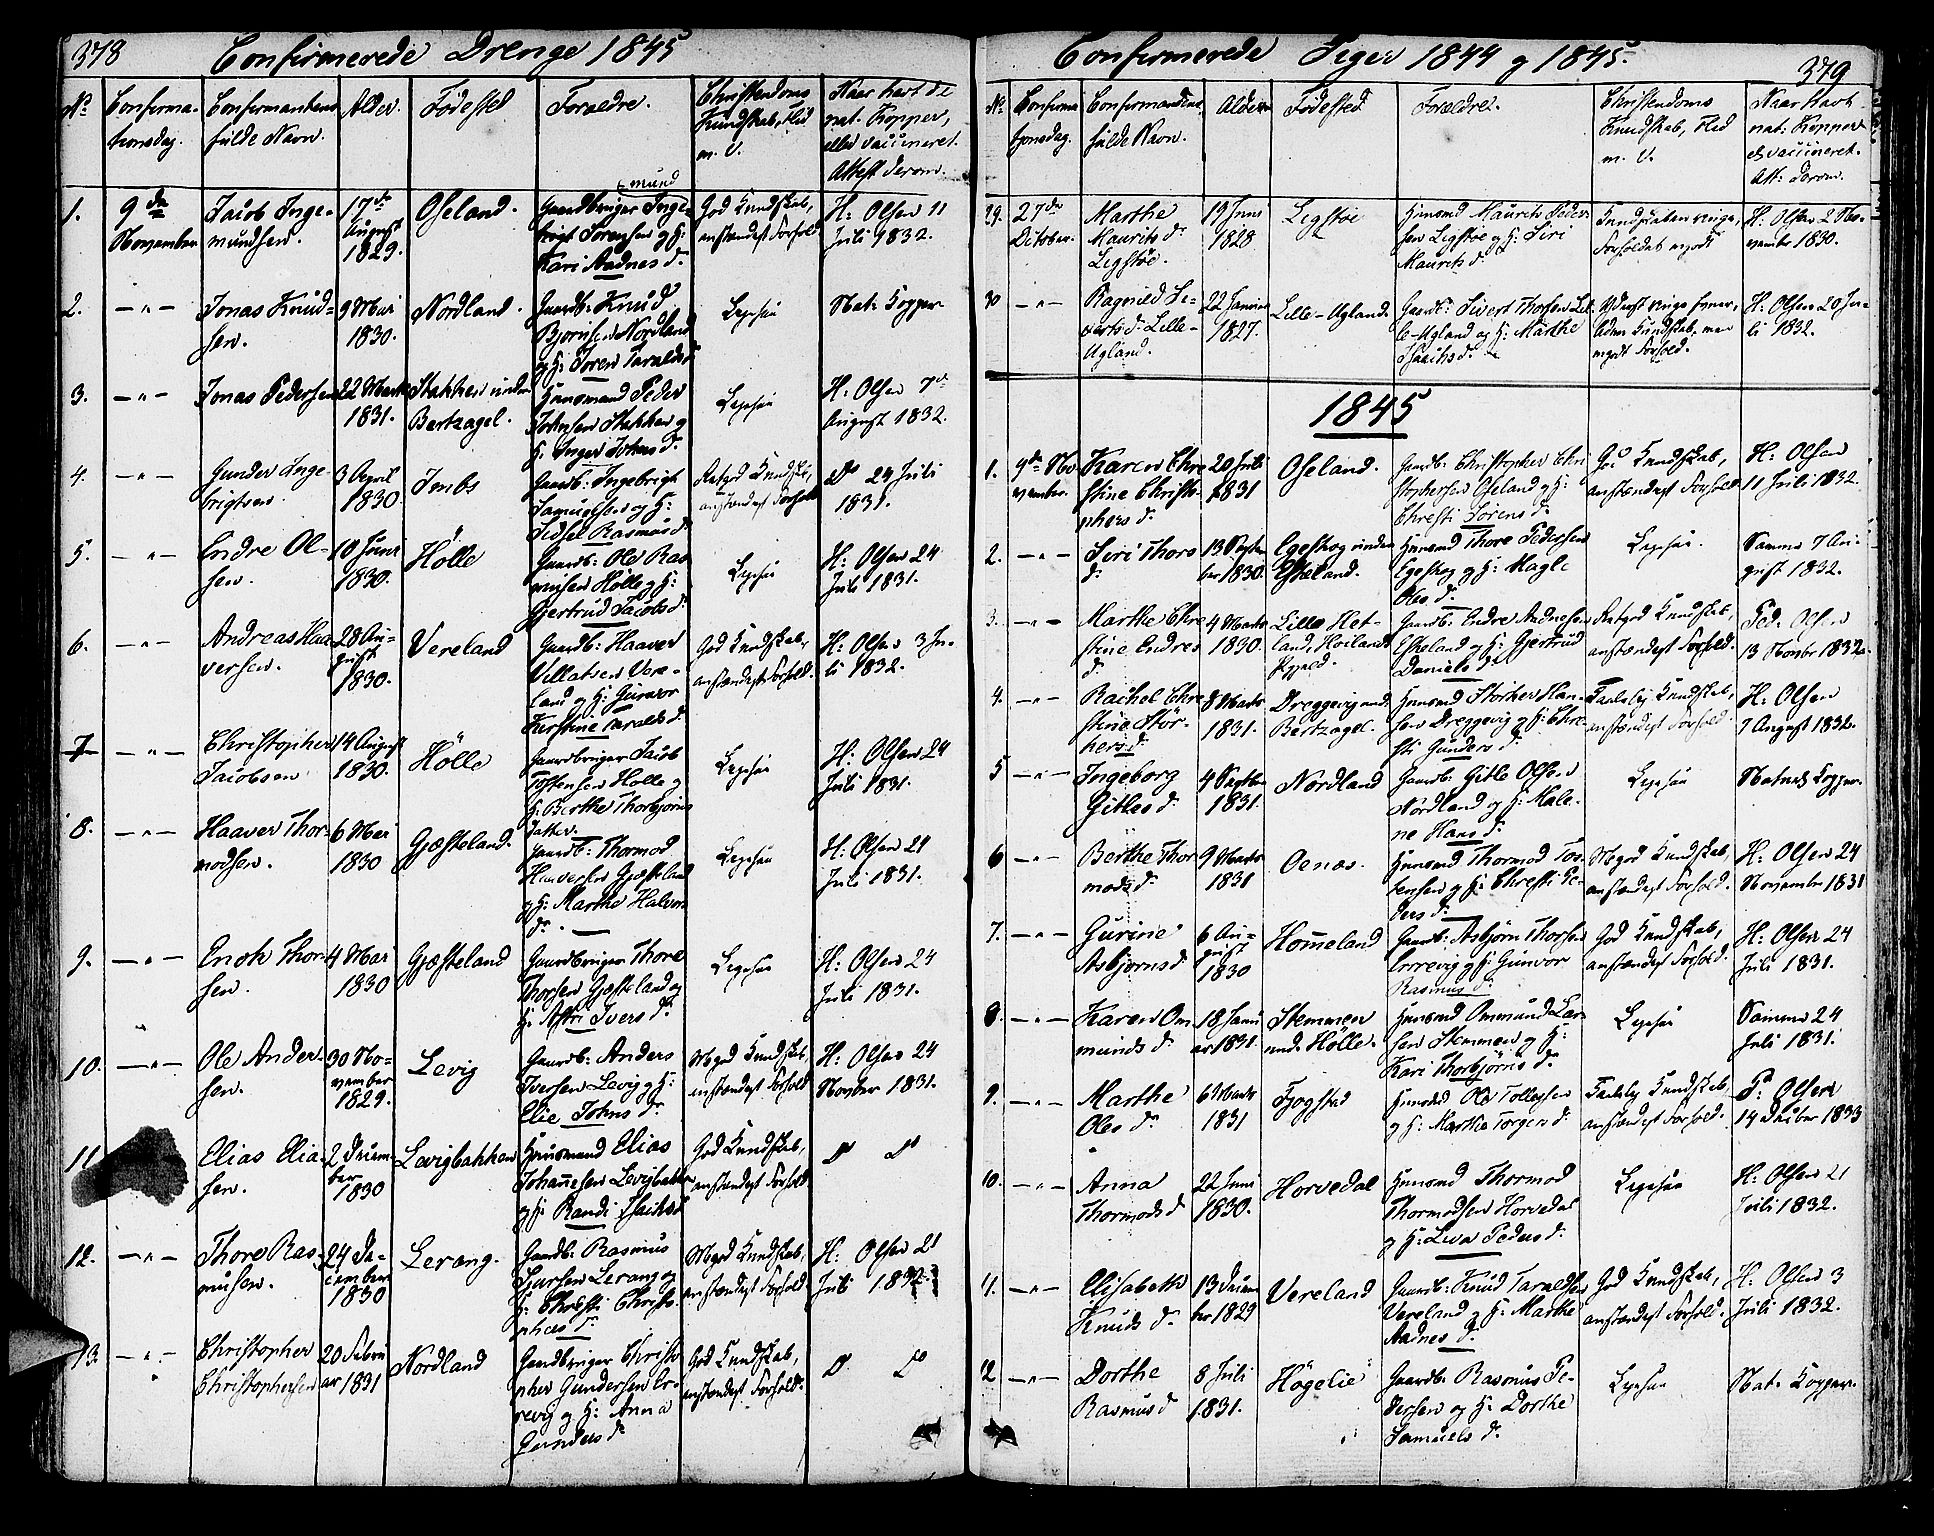 378
Confirmerede Drenge 1845
No
Confirma-
tionsdag.
Confirmantens
fulde Navn.
Alder.
Födested
Forældre.
Christendoms
Kundskab, Flid
m. v.
Naar havt de
nat. Kopper,
eller vaccineret.
Attest derom.
1.
9de
November
Jacob Inge-
mundsen.
17de
August
1829.
Oseland.
emund
Gaardbruger Inge-
brigt Sørensen og H:
Kari Aadnes d.
God Kundskab,
anstændigt Forhold
H: Olsen 11
Juli 1832.
2.
— " —
Jonas Knud-
sen.
9 Mai
1830.
Nordland.
Gaardb: Knud
Bjørnsen Nordland
og H: Soren Taralds d
Ligesaa
Nat: Kopper
3.
— " —
Jonas Pedersen
22 Marts
1831.
Stakken under
Bertzagel.
Huusmand Peder
Johnsen Stakken og
H: Inger Johns d.
Ligesaa
H: Olsen 7de
August 1832.
4.
— " —
Gunder Inge-
brigtsen.
3 April
1830
Imbs
Gaardb: Ingebrigt
Samuelsen og H:
Sidsel Rasmus d.
Retgod Kundskab,
anstændigt Forhold
Do 24 Juli
1831.
5.
— " —
Endre Ol-
sen.
10 Juni
1830.
Hölle
Gaardb: Ole Ras-
musen Hölle og H:
Gjertrud Jacobs d.
Ligesaa
H: Olsen 24
Juli 1831.
6.
— " —
Andreas Haa-
versen.
28 Au-
gust
1830.
Vereland
Gaardb: Haaver
Villatsen Vere-
land og H: Gunvor
Kirstine Taralds d.
God Kundskab,
anstændigt Forhold.
H: Olsen 3 Ju-
li 1832.
7
— " —
Christopher
Jacobsen
14 August
1830.
Hölle
Gaardbruger Jacob
Tostensen Hölle og
H: Berthe Thorbjørns
datter.
Ligesaa
H: Olsen 24
Juli 1831.
8.
— " —
Haaver Thor-
modsen.
6 Mai
1830
Gjesteland.
Gaardb: Thormod
Haaversen Gjesteland
og H: Marthe Halvors
d.
Ligesaa
H: Olsen 21
Juli 1831.
9.
— " —
Enok Thor-
sen.
4 Mai
1830
Gjesteland
Gaardbruger Thore
Thorsen Gjesteland og
H: Astri Ivers d.
Ligesaa
H: Olsen 24
Juli 1831.
10.
— " —
Ole Ander-
sen.
30 No-
vember
1829.
Levig
Gaardb: Anders
Iversen Levig og H:
Elie Johns d.
Mgod Kundskab,
anstændigt Forhold
H: Olsen 24
Novber 1831.
11
Elias Elia-
sen.
2 Decem-
ber
1830
Levigbakken
Huusmand Elias
Johannesen Levigbakken
og H: Randi Isaks d
God Kundskab,
anstændigt Forhold
Do Do
12.
— " —
Thore Ras-
musen.
24 De-
cember
1830
Lerang.
Gaardb: Rasmus
Sjursen Lerang og
H: Christi Christo-
phers d.
Mgod Kundskab,
anstændigt Forhold.
H: Olsen 21
Juli 1832
13.
— " —
Christopher
Christophersen
20 Febru
ar 1831
Nordland
Gaardbruger Christo-
pher Gundersen Er-
revig og H: Anna
Gunders d.
God Kundskab,
anstændigt Forhold.
Do Do
Confirmerede Piger 1844 og 1845.
379
No.
Confirma
tjonsdag.
Confirmandens
fulde Navn.
Alderen
Födested.
Forældre.
Christendoms
Kundskab, Flid
m. v.
Naar havt
nat: Kopper
el. vaccineret.
Att: derom.
29.
27de
October.
Marthe
Maurits d.
Ligstøe.
19 Juni
1828
Ligstøe
Huusmd Maurits Peder-
sen Ligstøe og H: Siri
Maurits d.
Kundskaben ringe,
Forholdet m godt
H: Olsen 2 No-
vember 1830.
30
— " —
Ragnild Si-
verts d. Lille-
Ugland.
22 Januar
1827.
Lille-Ugland.
Gaardb: Sivert Thorsen Lil-
le-Ugland og H: Marthe
Isachs d.
H: Olsen 20 Ju-
li 1832.
1845
1.
9de No
vember.
Karen Chri
stine Christo-
phers d.
20 Juli
1831
Oseland.
Gaardb: Christopher Chri
stophersen Oseland og H:
Christi Sörens d.
God Kundskab,
anstændigt Forhold
H: Olsen
11 Juli 1832.
2.
— " —
Siri Thors
d.
13 Septem
ber 1830.
Egeskog under
Giseland.
Huusmd Thore Pedersen
Egeskog og H: Magle
Oles d.
Ligesaa.
Samme 7 Au-
gust 1832.
3.
— " —
Marthe Chri
stine Endres
d.
4 Marts
1830.
Lille Het-
land, Höilands
Gjeld.
Gaardb: Endre Andresen
Eskeland og H: Gjertrud
Daniels d.
Retgod Kundskab,
anstændigt Forhold.
Ped. Olsen
13 Novbr 1832.
4.
— " —
Rachel Chri
stine Stör-
kers d.
8 Marts
1831.
Dreggevig und.
Bertzagel.
Huusmd Störker Han-
sen Dreggevig og H: Chri-
sti Gunders d.
Taalelig Kundskab,
anstændigt Forhold.
H: Olsen
7 August 1832.
5
— " —
Ingeborg
Gitles d.
4 Septbr
1831.
Nordland
Gaardb: Gitle Olsen
Nordland og H: Male-
ne Hans d.
Ligesaa
Naturl. Kopper.
6
— " —
Berthe Thor
mods d.
9 Marts
1831
Oenas.
Huusmd Thormod Tos-
tensen og H: Christi Pe-
ders d.
Mgod Kundskab,
anstændigt Forhold.
H: Olsen 24
November 1831
7.
— " —
Gurine
Asbjørns d.
6 Au-
gust
1830
Hommeland
Gaardb: Asbjørn Thorsen
Errevig og H: Gunvor
Rasmus d.
God Kundskab,
anstændigt Forhold.
H: Olsen 24
Juli 1831.
8.
— " —
Karen Om
munds d.
18 Janu
ar 1831.
Stemmen
und. Hölle.
Huusmd Ommund Lar-
sen Stemmen og H:
Kari Thorbjörns d.
Ligesaa
Samme 24
Juli 1831.
9.
— " —
Marthe
Oles d.
6 Marts
1831
Fjogstad
Huusmd Ole Tollefsen
og H: Marthe Torgers d.
Taalelig Kundskab,
anstændigt Forhold.
P: Olsen
14 Decbr 1833
10.
— " —
Anna
Thormods d.
22 Juni
1830.
Horvedal
Huusmd Thormod
Thormodsen Horvedal
og H: Liva Peders d.
Ligesaa
H: Olsen 21
Juli 1832.
11.
— " —
Elisabeth
Knuds d.
13 Decem
br 1829
Vereland
Gaardb: Knud Taraldsen
Vereland og H: Marthe
Aadnes d.
God Kundskab,
anstændigt Forhold.
H: Olsen 3
Juli 1832.
12
— " —
Dorthe
Rasmus d
8 Juli
1831.
Högelie
Gaardb: Rasmus Pe-
dersen og H: Dorthe
Samuels d.
Ligesaa
Nat. Kopper.